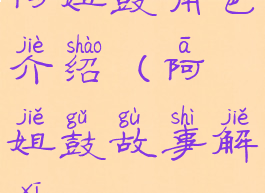 阿姐鼓角色
jiè shào ā
介绍（阿
jiě gǔ gù shì jiě
姐鼓故事解
xī